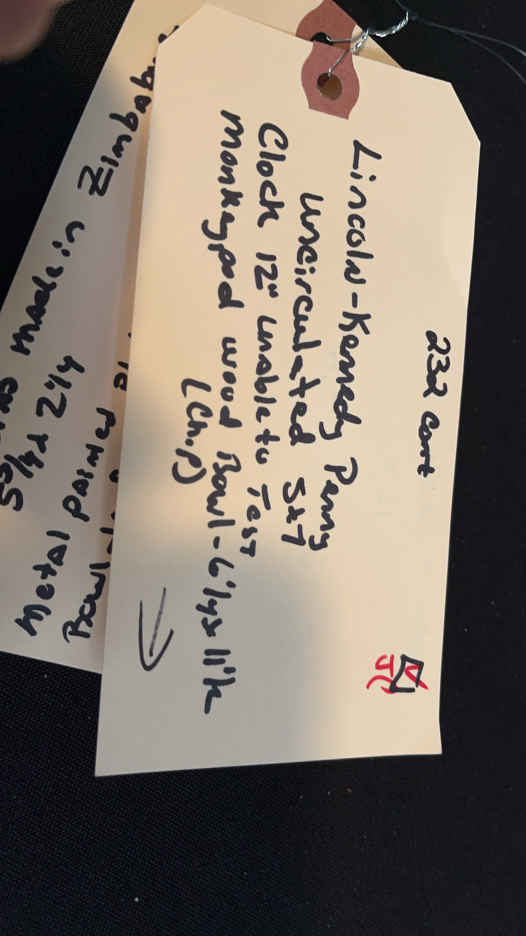 232 cont
Lincoln-Kennedy Penny
uncirculated SxT
Clock 12" unable to Test
monkeypod wood Bowl-Lilys like
(Chip)
JC
made in Zimbabwe
2 1/4
metal painted
Bowl